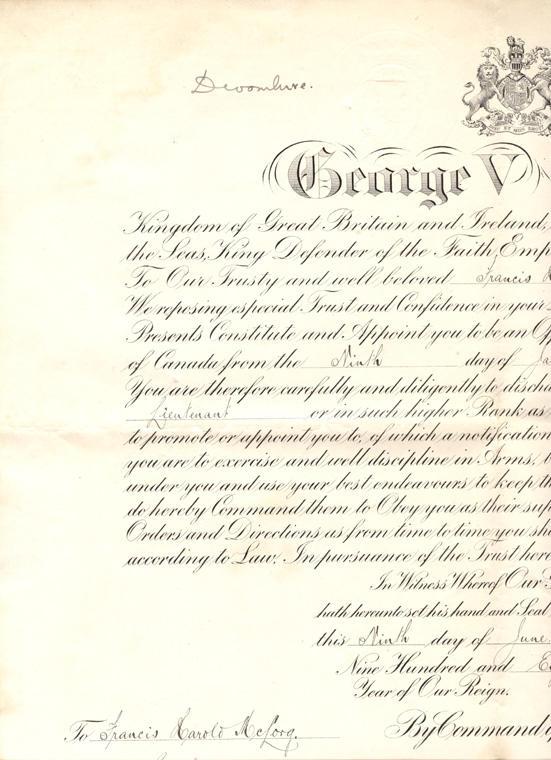 Devonshire.
George V
Kingdom of Great Britain and Ireland,
the Seas, King Defender of the Faith, Emp
To Our Trusty and well beloved Francis H
We reposing especial Trust and Confidence in your
Presents Constitute and Appoint you to be an Off
of Canada from the Ninth day of Ja
You are therefore carefully and diligently to discha
Lieutenant or in such higher Rank as
to promote or appoint you to, of which a notification
you are to exercise and well discipline in Arms,
under you and use your best endeavours to keep th
do hereby Command them to Obey you as their sup
Orders and Directions as from time to time you sha
according to Law. In pursuance of the Trust here
In Witness Whereof Our
hath hereunto set his hand and Seal
this Ninth day of June
Nine Hundred and E
Year of Our Reign.
To Francis Harold McLorg.
By Command o